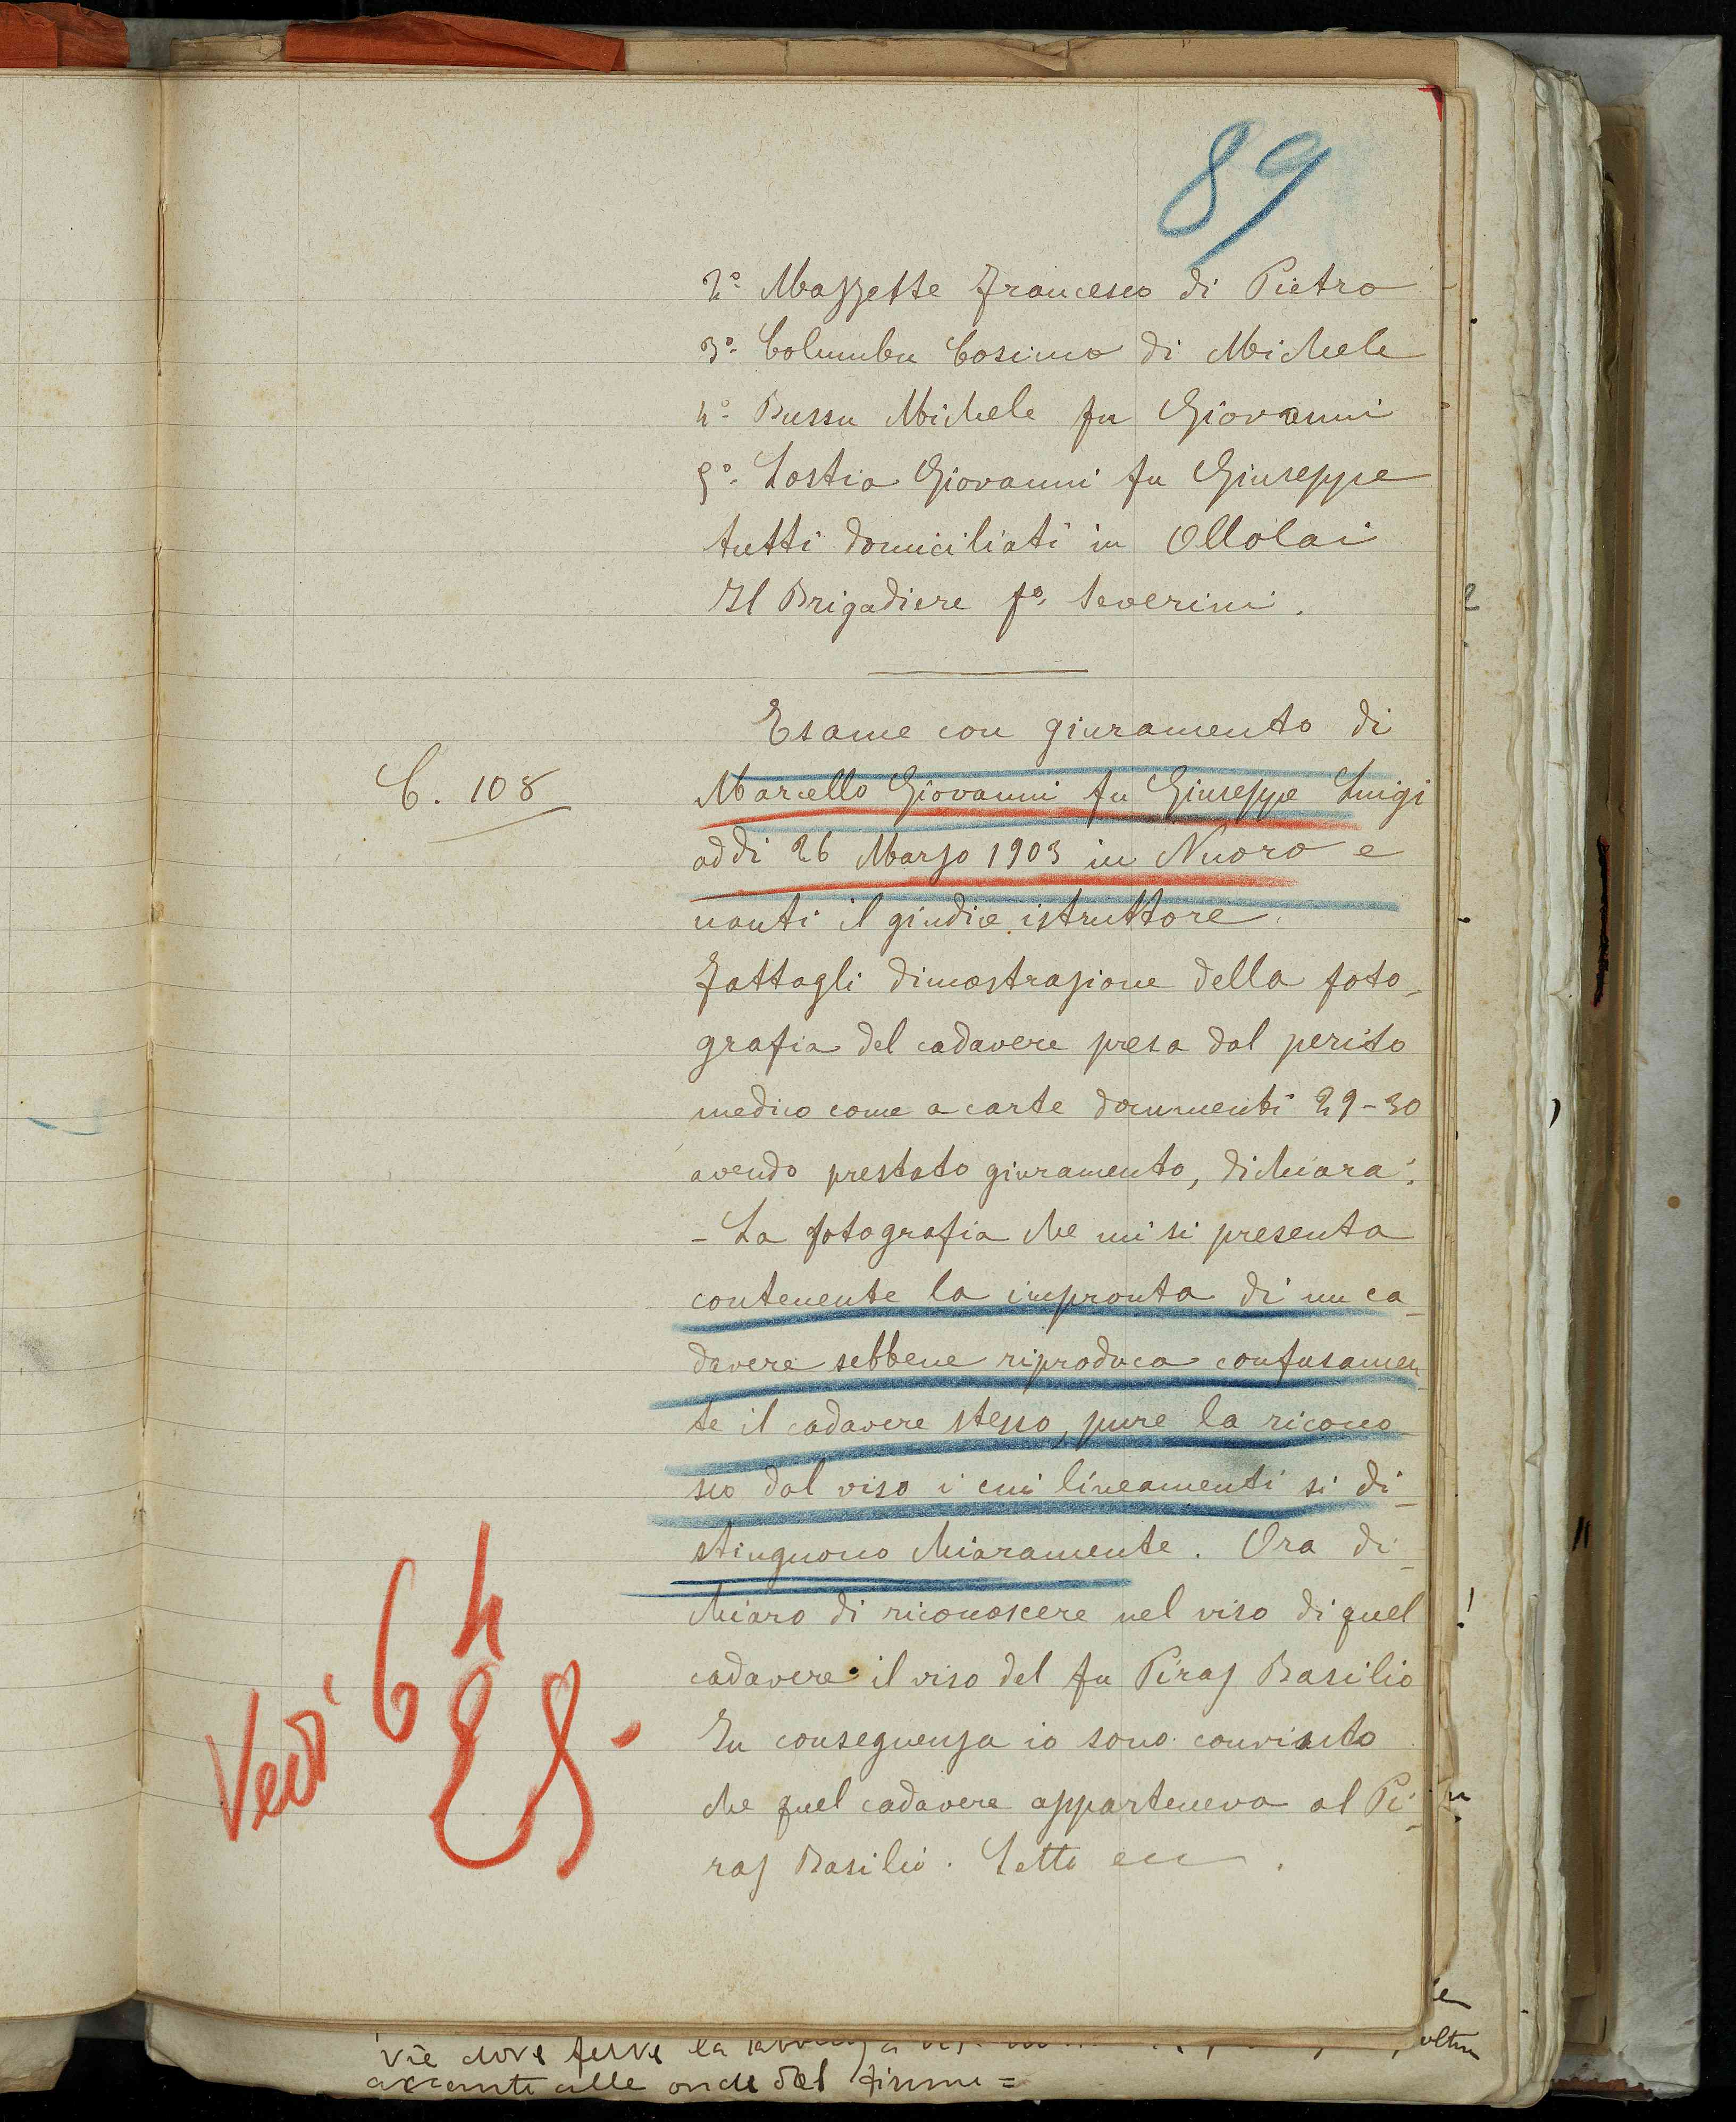 89
2º Mazzette Francesco di Pietro
3º Columbu Cosimo di Michele
4º Bussu Michele fu Giovanni
5º Lostia Giovanni fu Giuseppe
tutti domiciliati in Ollolai
Il Brigadiere fº Severini.
Esame con giuramento di
C. 108
Marcello Giovanni fu Giuseppe Luigi
addi 26 Marzo 1903 in Nuoro e
nanti il giudice istruttore.
Fattagli dimostrazione della foto-
grafia del cadavere presa dal perito
medico come a carte documenti 29-30
avendo prestato giuramento, dichiara:
- La fotografia che mi si presenta
contenente la impronta di un ca-
davere sebbene riproduca confusamen-
te il cadavere stesso, pure la ricono-
sco dal viso i cui lineamenti si di-
stinguono chiaramente. Ora di-
chiaro di riconoscere nel viso di quel
cadavere il viso del fu Piraz Basilio
In conseguenza io sono convinto
che quel cadavere apparteneva al Pi-
raz Basilio. Letto ecc.
Vedi
accanto alle onde del fiume =